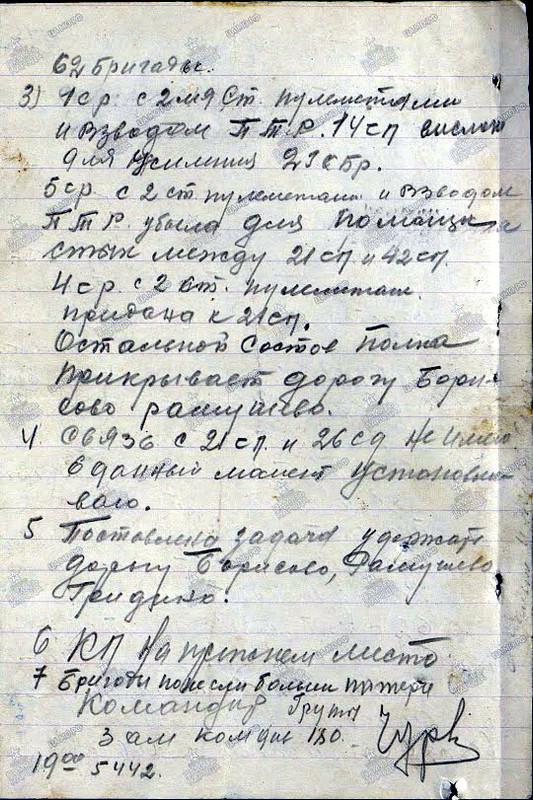 62 Бригады.
3) 1 ср. с 2мя Ст. пулеметами
и взводом П.Т.Р. 14сп выслан
для усиления 21 сбр.
5 ср. с 2 ст пулеметами и взводом
П.Т.Р. убыла для помощи на
стык между 21сп и 42сп.
4 ср. с 2 ст. пулеметами
придана к 21сп.
Остальной Состов полка
прикрывает дорогу Бори-
сово рамушево.
4 Связь с 21 сп. и 26 сд не имею
в данный момент устоновли-
ваю.
5 Поставлена задача удержать
дорогу Борисово, Рамушево
Гридино.
6 КП на прежнем место
7 Бригады понесли больши потери
Командир Группы
Зам комдив 180.
19⁰⁰ 5442.